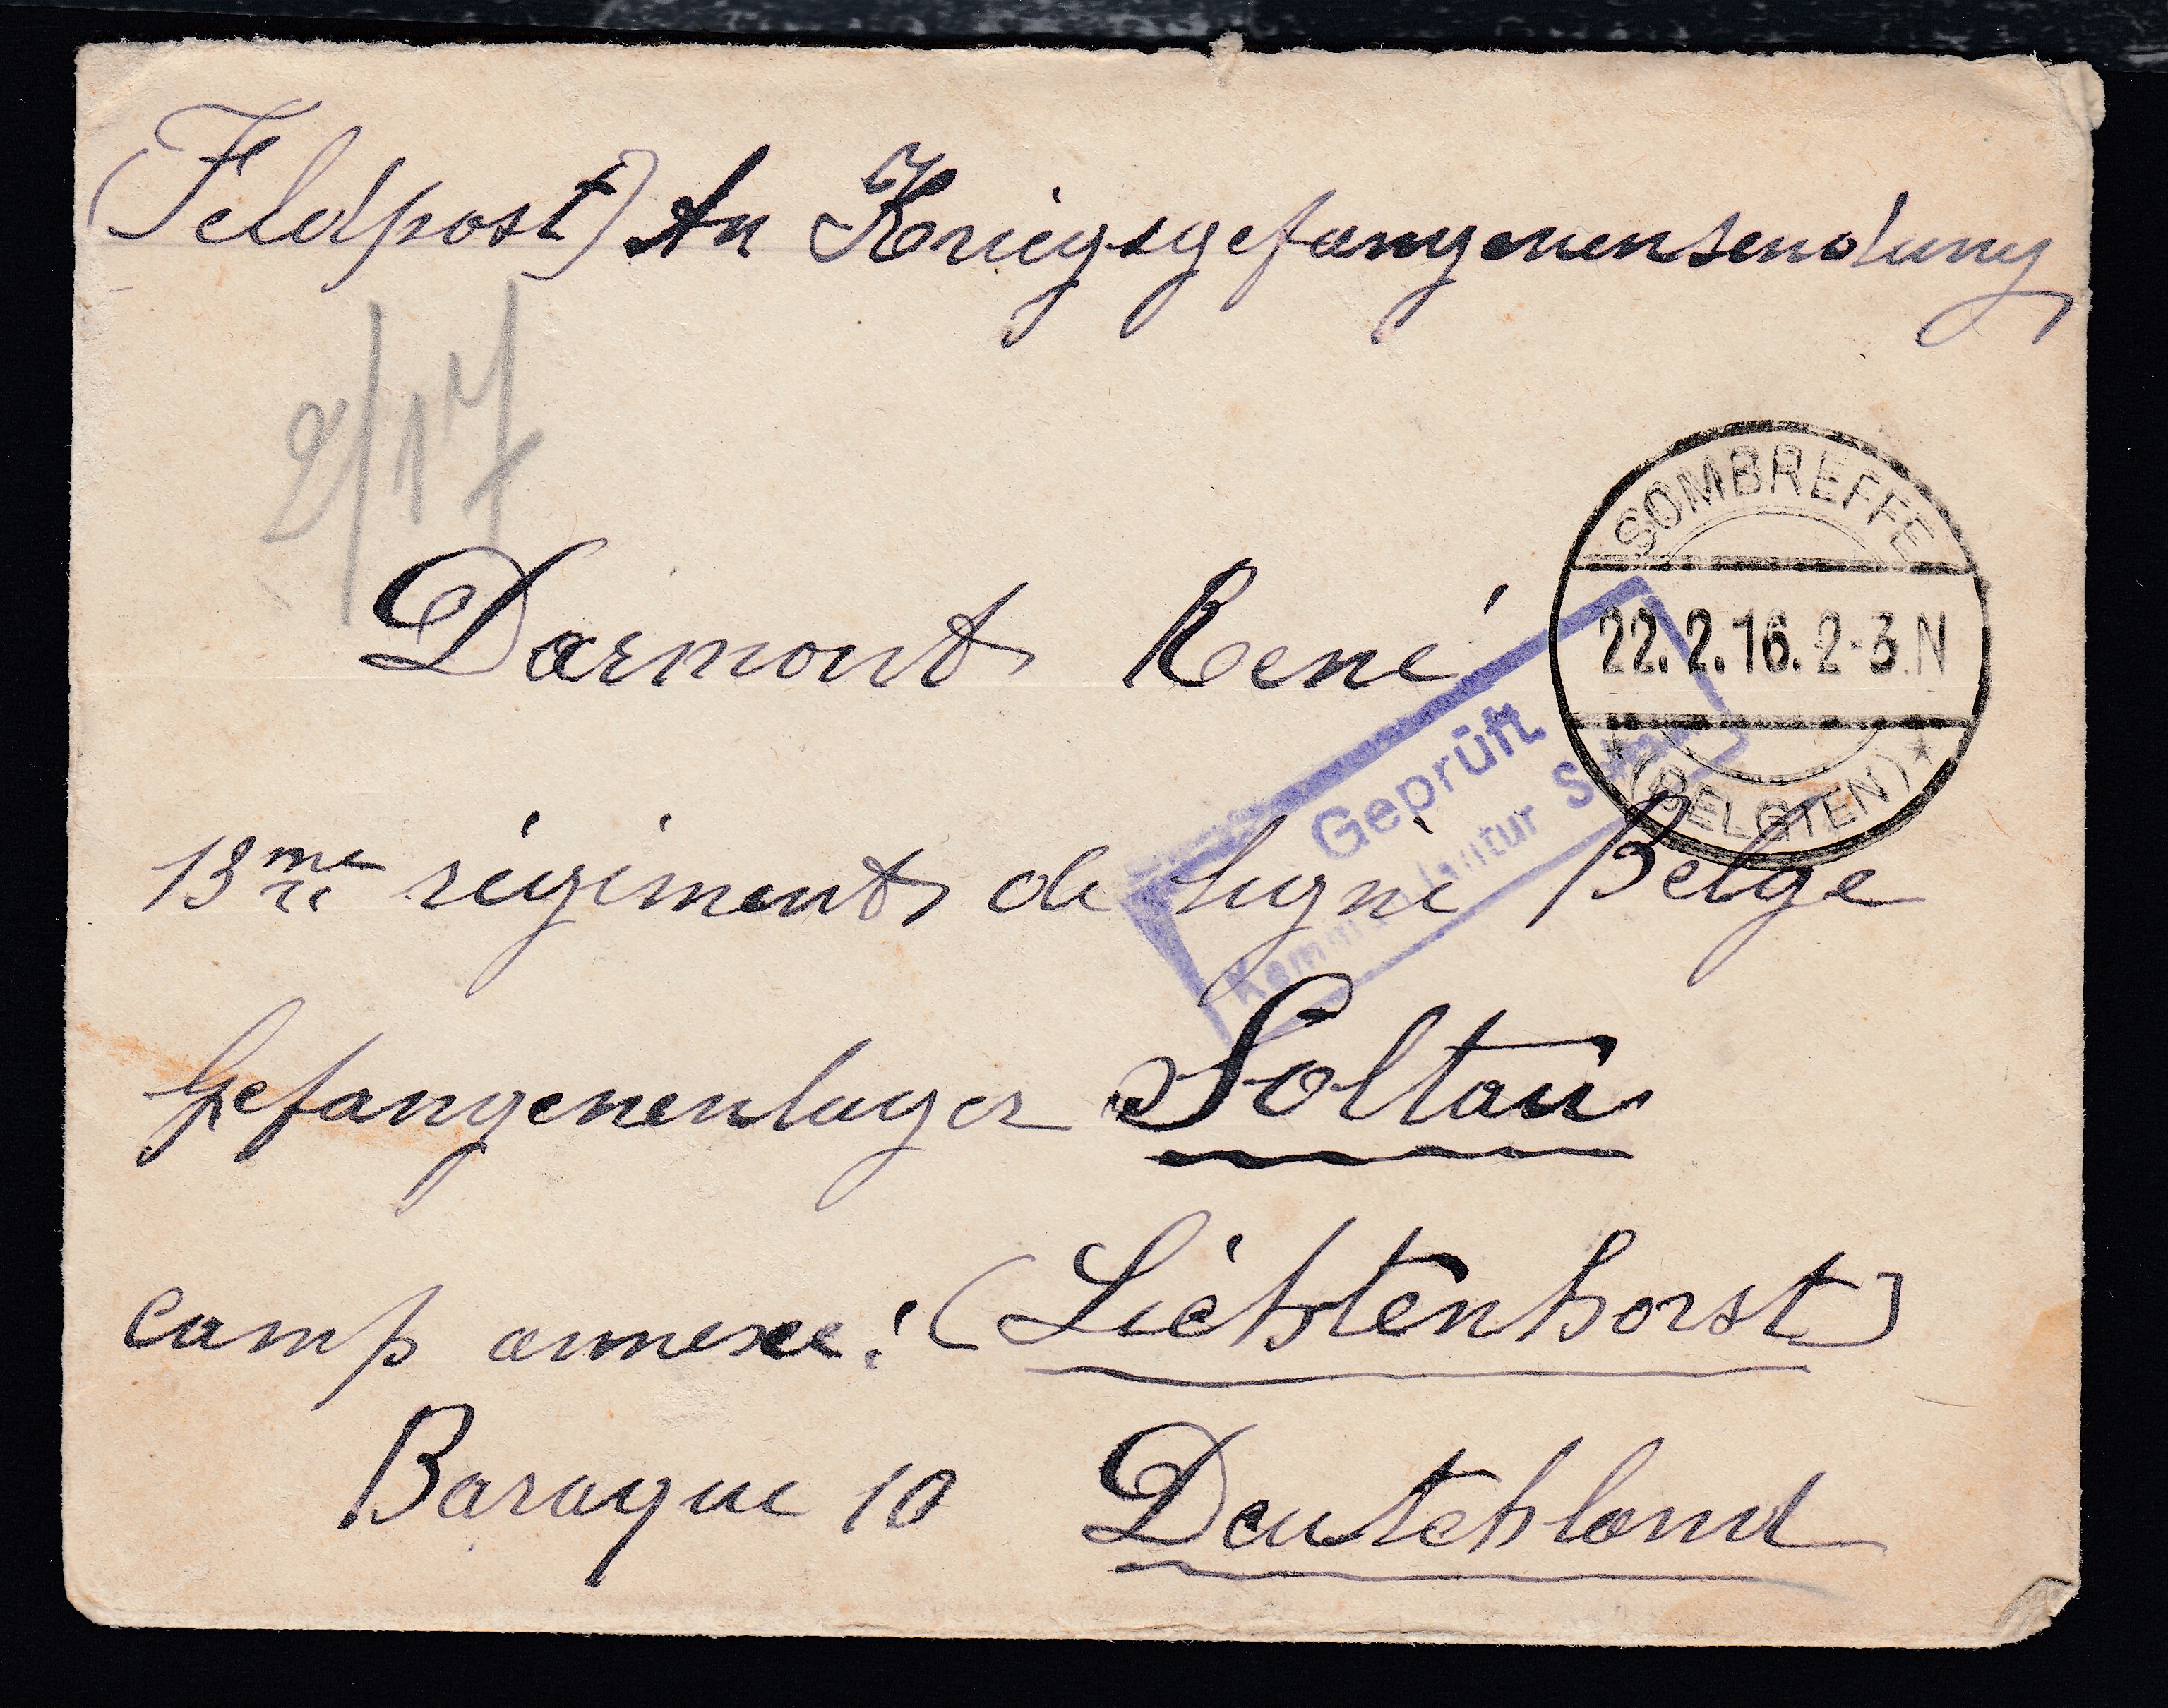 (Feldpost) An Kriegsgefangenensendung
2/17
SOMBREFFE
22.2.16.2-3.N
* (BELGIEN) *
Darmont René
Geprüft
Kommandantur Soltau
13me régiment de ligne Belge
Gefangenenlager Soltau
camp annexe : (Lichtenhorst)
Baraque 10 Deutchland